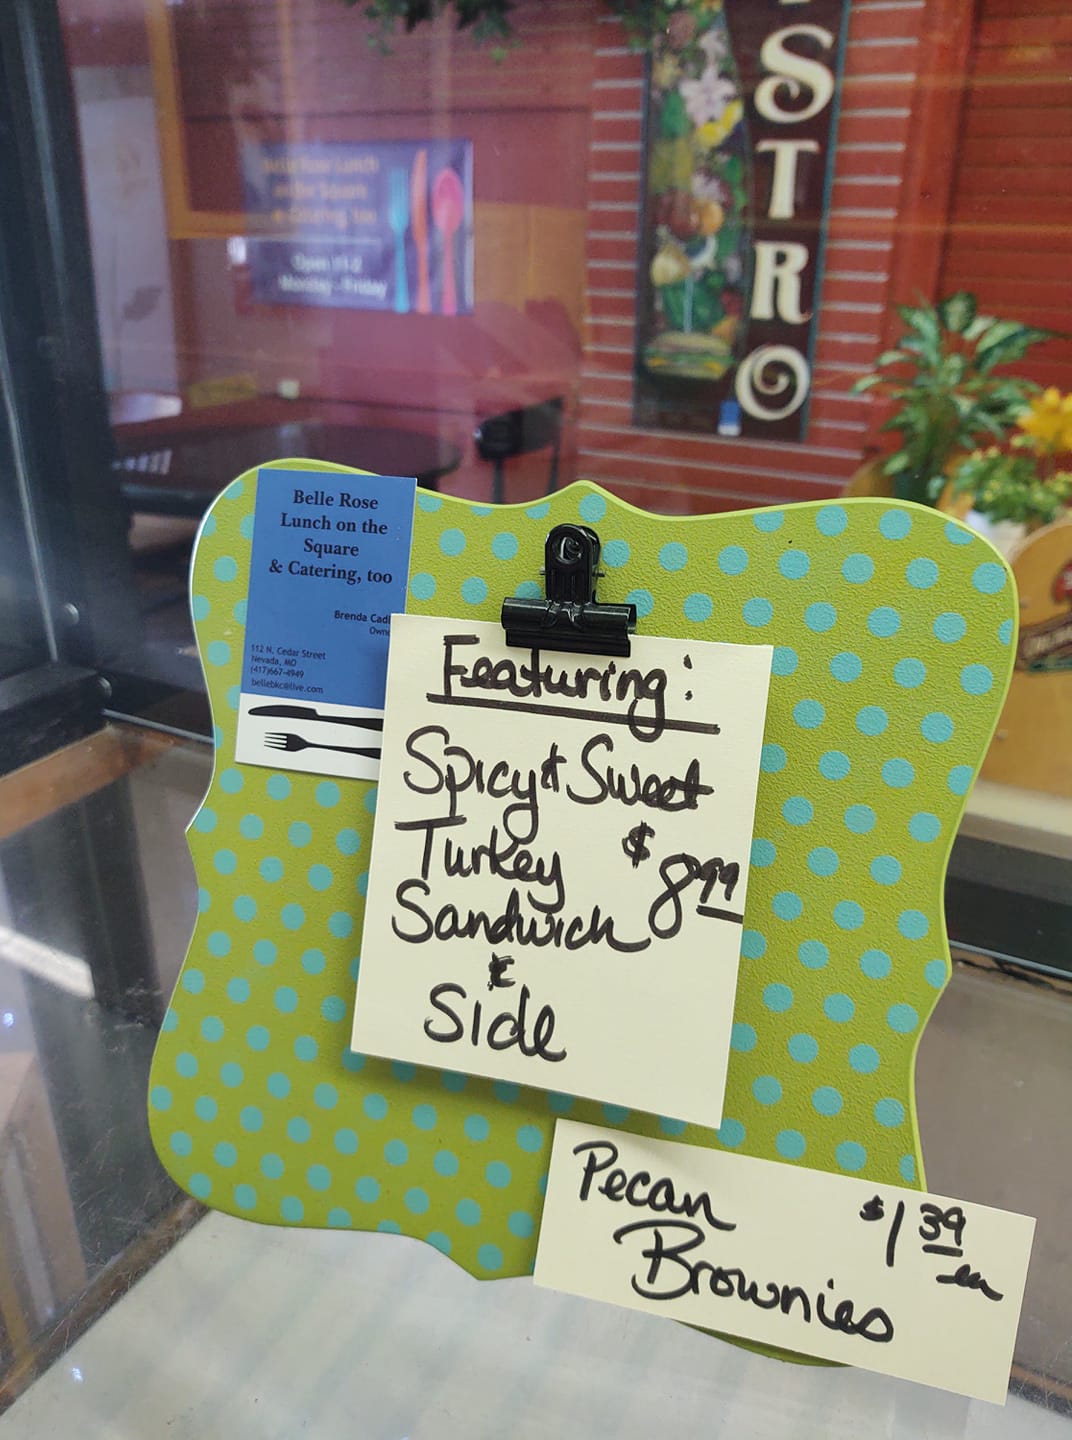 STRO
Belle Rose Lunch
on the Square
& Catering, too
Open 11-2
Monday - Friday
Belle Rose
Lunch on the
Square
& Catering, too
Brenda
112 N. Cedar Street
Nevada, MO
(417)667-4949
bellebkc@live.com
Featuring:
Spicy & Sweet
Turkey $8.99
Sandwich
&
Side
Pecan $1.39
Brownies ea